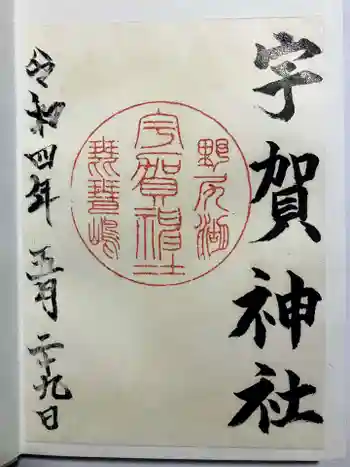 宇賀神社
野尻湖
宇賀神社
琵琶嶋
令和四年 五月二十九日